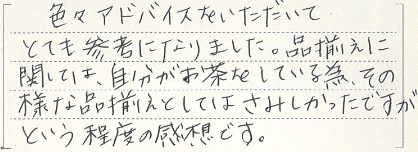 色々アドバイスをいただいて
とても参考になりました。品揃えに
関しては、自分がお茶をしている為、その
様な品揃えとしてはさみしかったですが
という程度の感想です。